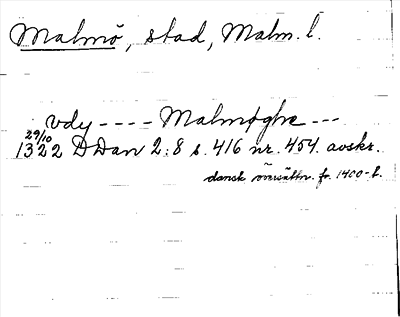 Malmö, stad, Malm. l.
vdy ---- Malmøghe ---
29/10
1322 DDan 2:8 s. 416 nr. 454. avskr.
dansk översättn. fr. 1400-t.